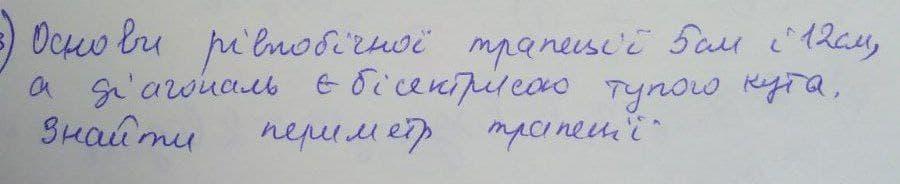 ) Основи рівнобічної трапеції 5см і 12см,
а діагональ є бісектрисою тупого кута.
Знайти периметр трапеції